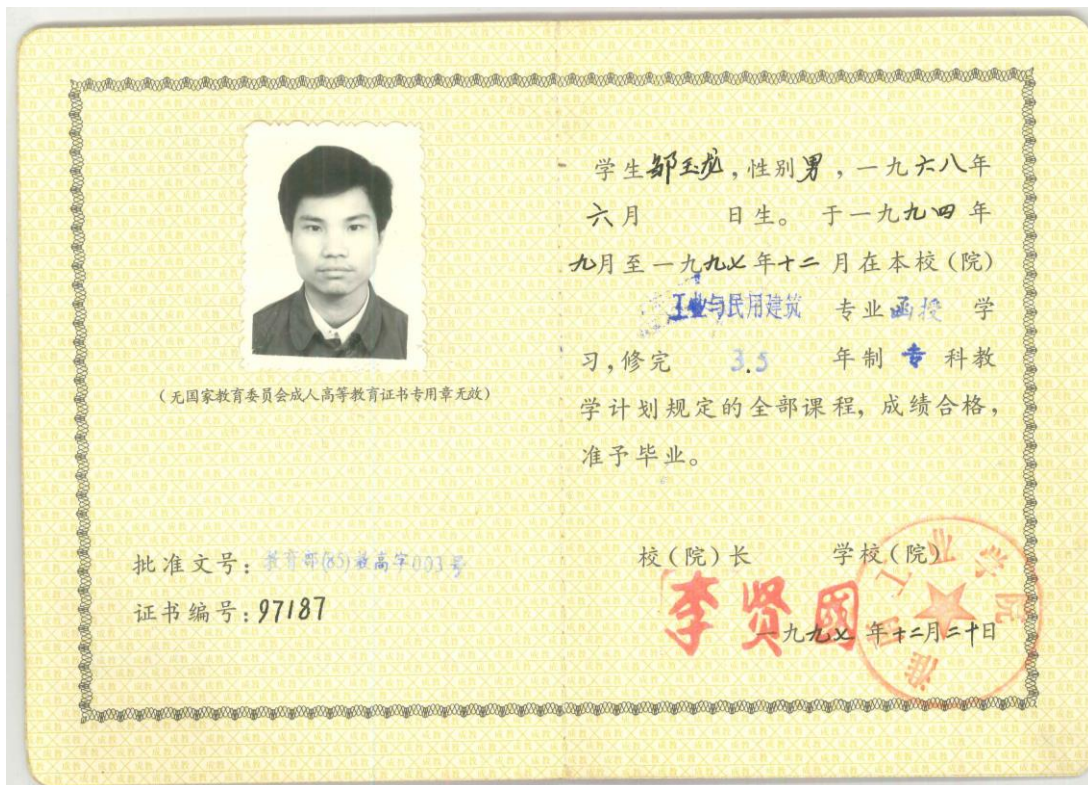 (无国家教育委员会成人高等教育证书专用章无效)
批准文号:教育部(85)教高字003号
证书编号:97187
学生邹玉龙,性别男,一九六八年
六月 日生。于一九九四年
九月至一九九七年十二月在本校(院)
工业与民用建筑 专业函授 学
习,修完 3.5 年制 专 科教
学计划规定的全部课程,成绩合格,
准予毕业。
校(院)长 学校(院)
李贤国
一九九七年十二月二十日
工业学院